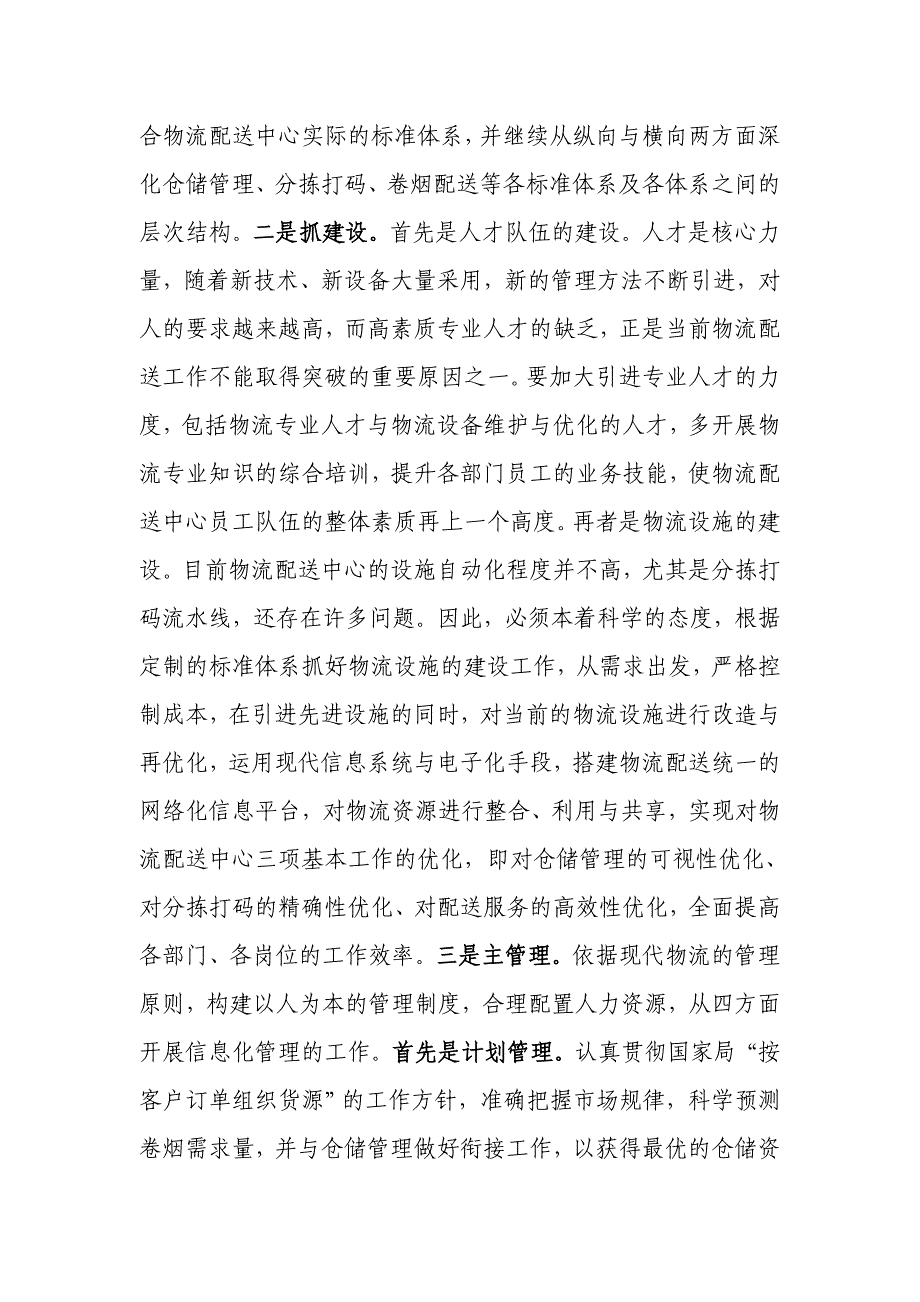 合物流配送中心实际的标准体系，并继续从纵向与横向两方面深
化仓储管理、分拣打码、卷烟配送等各标准体系及各体系之间的
层次结构。二是抓建设。首先是人才队伍的建设。人才是核心力
量，随着新技术、新设备大量采用，新的管理方法不断引进，对
人的要求越来越高，而高素质专业人才的缺乏，正是当前物流配
送工作不能取得突破的重要原因之一。要加大引进专业人才的力
度，包括物流专业人才与物流设备维护与优化的人才，多开展物
流专业知识的综合培训，提升各部门员工的业务技能，使物流配
送中心员工队伍的整体素质再上一个高度。再者是物流设施的建
设。目前物流配送中心的设施自动化程度并不高，尤其是分拣打
码流水线，还存在许多问题。因此，必须本着科学的态度，根据
定制的标准体系抓好物流设施的建设工作，从需求出发，严格控
制成本，在引进先进设施的同时，对当前的物流设施进行改造与
再优化，运用现代信息系统与电子化手段，搭建物流配送统一的
网络化信息平台，对物流资源进行整合、利用与共享，实现对物
流配送中心三项基本工作的优化，即对仓储管理的可视性优化、
对分拣打码的精确性优化、对配送服务的高效性优化，全面提高
各部门、各岗位的工作效率。三是主管理。依据现代物流的管理
原则，构建以人为本的管理制度，合理配置人力资源，从四方面
开展信息化管理的工作。首先是计划管理。认真贯彻国家局“按
客户订单组织货源”的工作方针，准确把握市场规律，科学预测
卷烟需求量，并与仓储管理做好衔接工作，以获得最优的仓储资